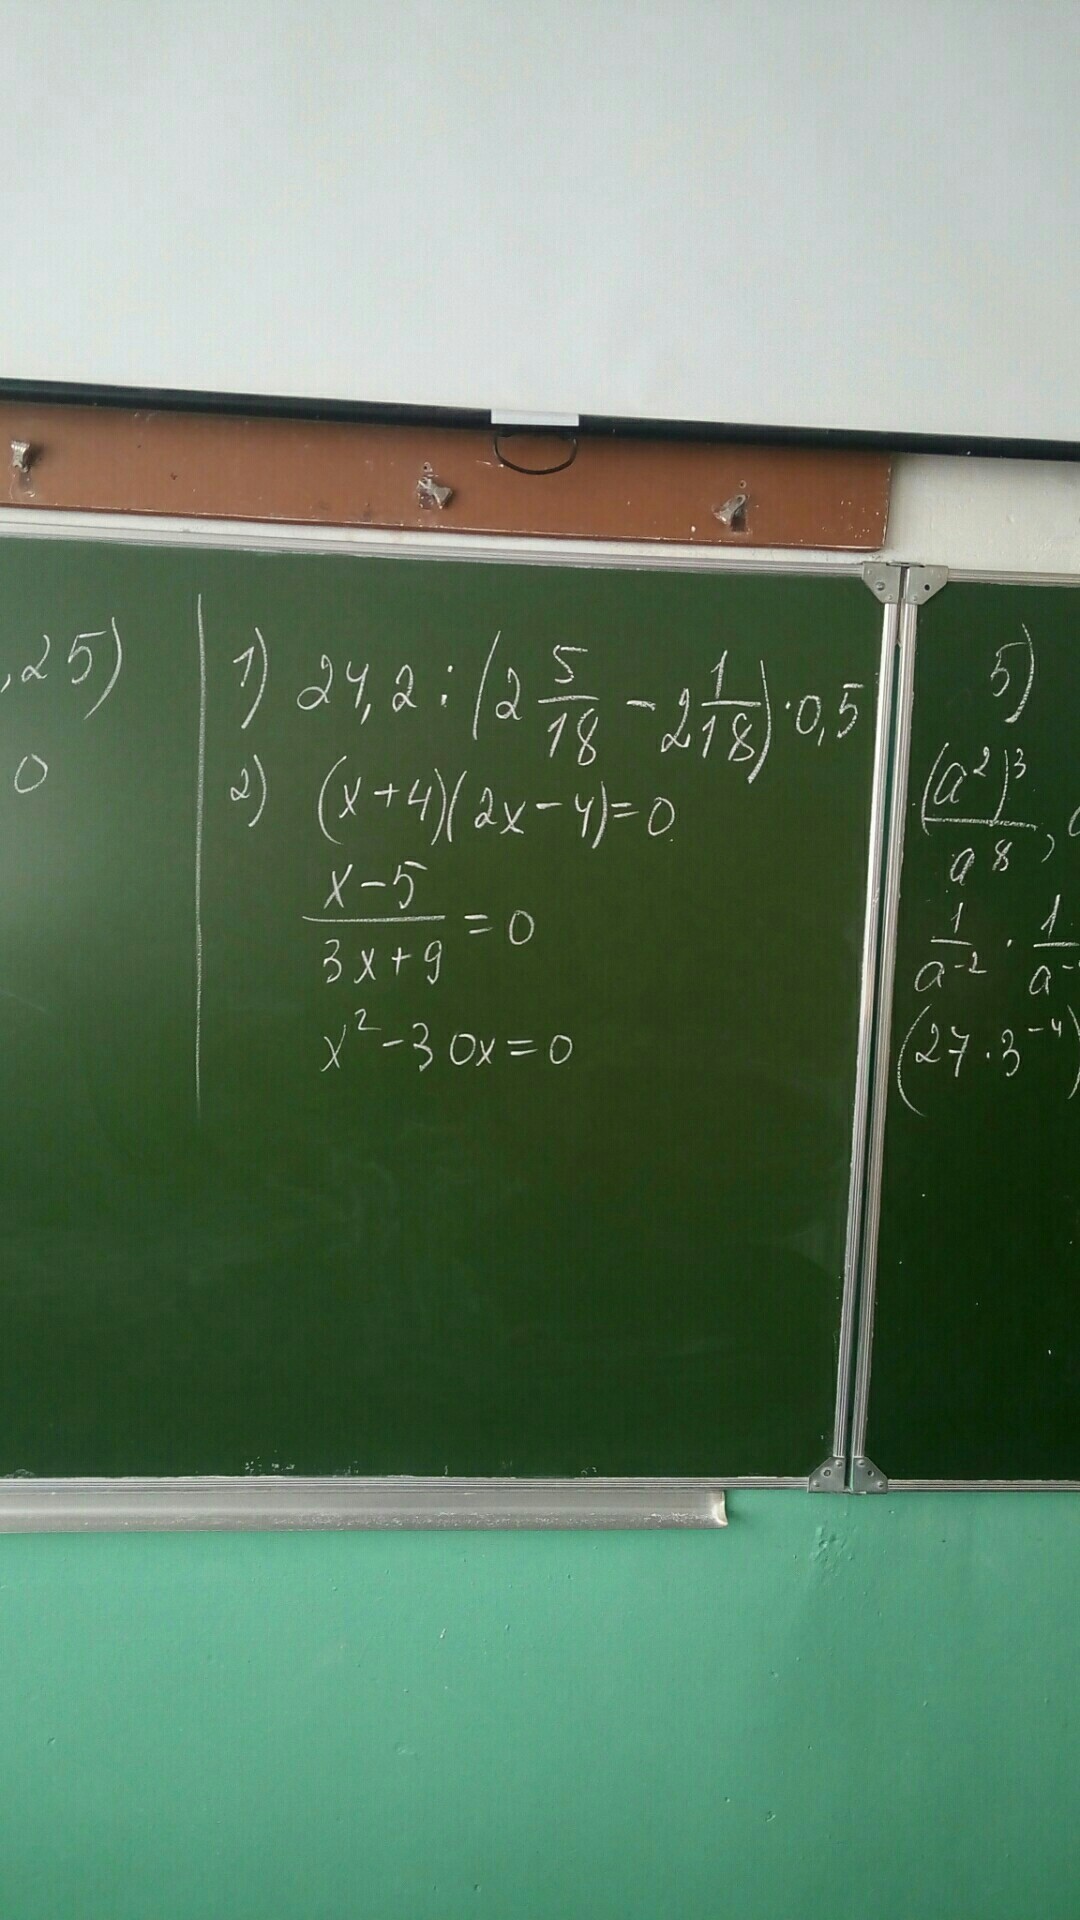 ,25)
0
1) 24,2 : (2 5/18 - 2 1/18) · 0,5
2) (x+4)(2x-4)=0
x-5/3x+9 = 0
x²-30x=0
5)
(a²)³/a⁸,
1/a⁻² · 1/a⁻
(27·3⁻⁴)